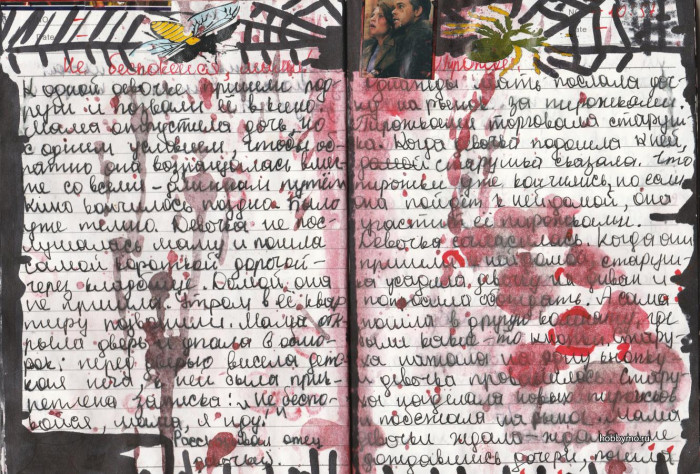 Не беспокойся, мама!
К одной девочке пришли под-
руги и позвали её в кино.
Мама отпустила дочь но
с одним условием. Чтобы об-
ратно она возвращалась вмес-
те со всеми - длинным путём
Кино кончилось поздно. Было
уже темно. Девочка не пос-
лушалась мамы и пошла
самой короткой дорогой -
через кладбище. Домой она
не пришла. Утром в её квар
тиру позвонили. Мама от-
крыла дверь и упала в обмо-
рок: перед дверью висела детс-
кая
и к ней была прик-
реплена записка: «Не беспо-
койся, мама, я иду».
отец
девочки.
Пирожки
Однажды мать послала доч-
ку на рынок за пирожками.
Пирожками торговала старуш-
ка. Когда девочка подошла к ней,
старушка сказала. Что
пирожки уже кончились, но если
она пойдёт к ней домой, она
угостит её пирожками.
Девочка согласилась, когда они
пришли к ней домой, старуш-
ка усадила девочку на диван и
попросила подождать. А сама
пошла в другую комнату, где
были какие-то кнопки. Стару-
ха нажала на одну кнопку -
и девочка провалилась. Стару-
ха наделала новых пирожков
и побежала на рынок. Мама
девочки ждала-ждала и не
дождавшись дочери, пошла
hobbymo.ru